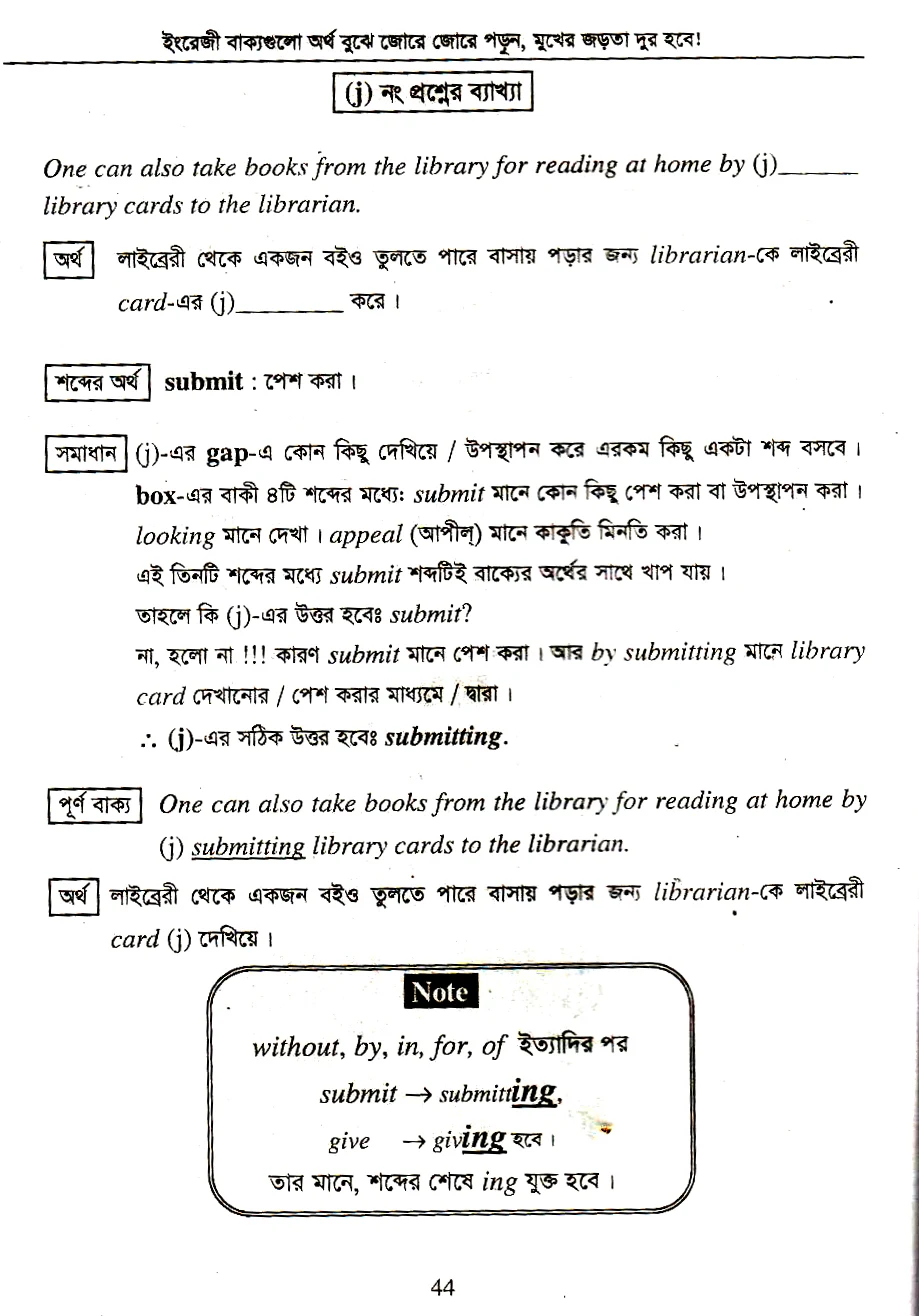 ইংরেজী বাক্যগুলো অর্থ বুঝে জোরে জোরে পড়ুন, মুখের জড়তা দূর হবে!
(j) নং প্রশ্নের ব্যাখ্যা
One can also take books from the library for reading at home by (j)_______
library cards to the librarian.
অর্থ লাইব্রেরী থেকে একজন বইও তুলতে পারে বাসায় পড়ার জন্য librarian-কে লাইব্রেরী
card-এর (j)_________ করে ।
শব্দের অর্থ submit : পেশ করা ।
সমাধান (j)-এর gap-এ কোন কিছু দেখিয়ে / উপস্থাপন করে এরকম কিছু একটা শব্দ বসবে ।
box-এর বাকী ৪টি শব্দের মধ্যেঃ submit মানে কোন কিছু পেশ করা বা উপস্থাপন করা ।
looking মানে দেখা । appeal (আপীল্) মানে কাকুতি মিনতি করা ।
এই তিনটি শব্দের মধ্যে submit শব্দটিই বাক্যের অর্থের সাথে খাপ যায় ।
তাহলে কি (j)-এর উত্তর হবেঃ submit?
না, হলো না !!! কারণ submit মানে পেশ করা । আর by submitting মানে library
card দেখানোর / পেশ করার মাধ্যমে / দ্বারা ।
∴ (j)-এর সঠিক উত্তর হবেঃ submitting.
পূর্ণ বাক্য One can also take books from the library for reading at home by
(j) submitting library cards to the librarian.
অর্থ লাইব্রেরী থেকে একজন বইও তুলতে পারে বাসায় পড়ার জন্য librarian-কে লাইব্রেরী
card (j) দেখিয়ে ।
Note
without, by, in, for, of ইত্যাদির পর
submit → submitting,
give → giving হবে ।
তার মানে, শব্দের শেষে ing যুক্ত হবে ।
44